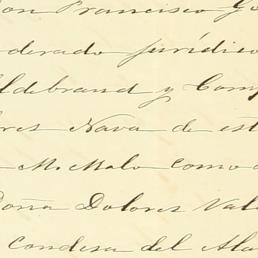 Don Francisco G
derado jurídico
ldebrand y Comp
ores Nava de est
M. Malo como
Doña Dolores Val
Condesa del Ala